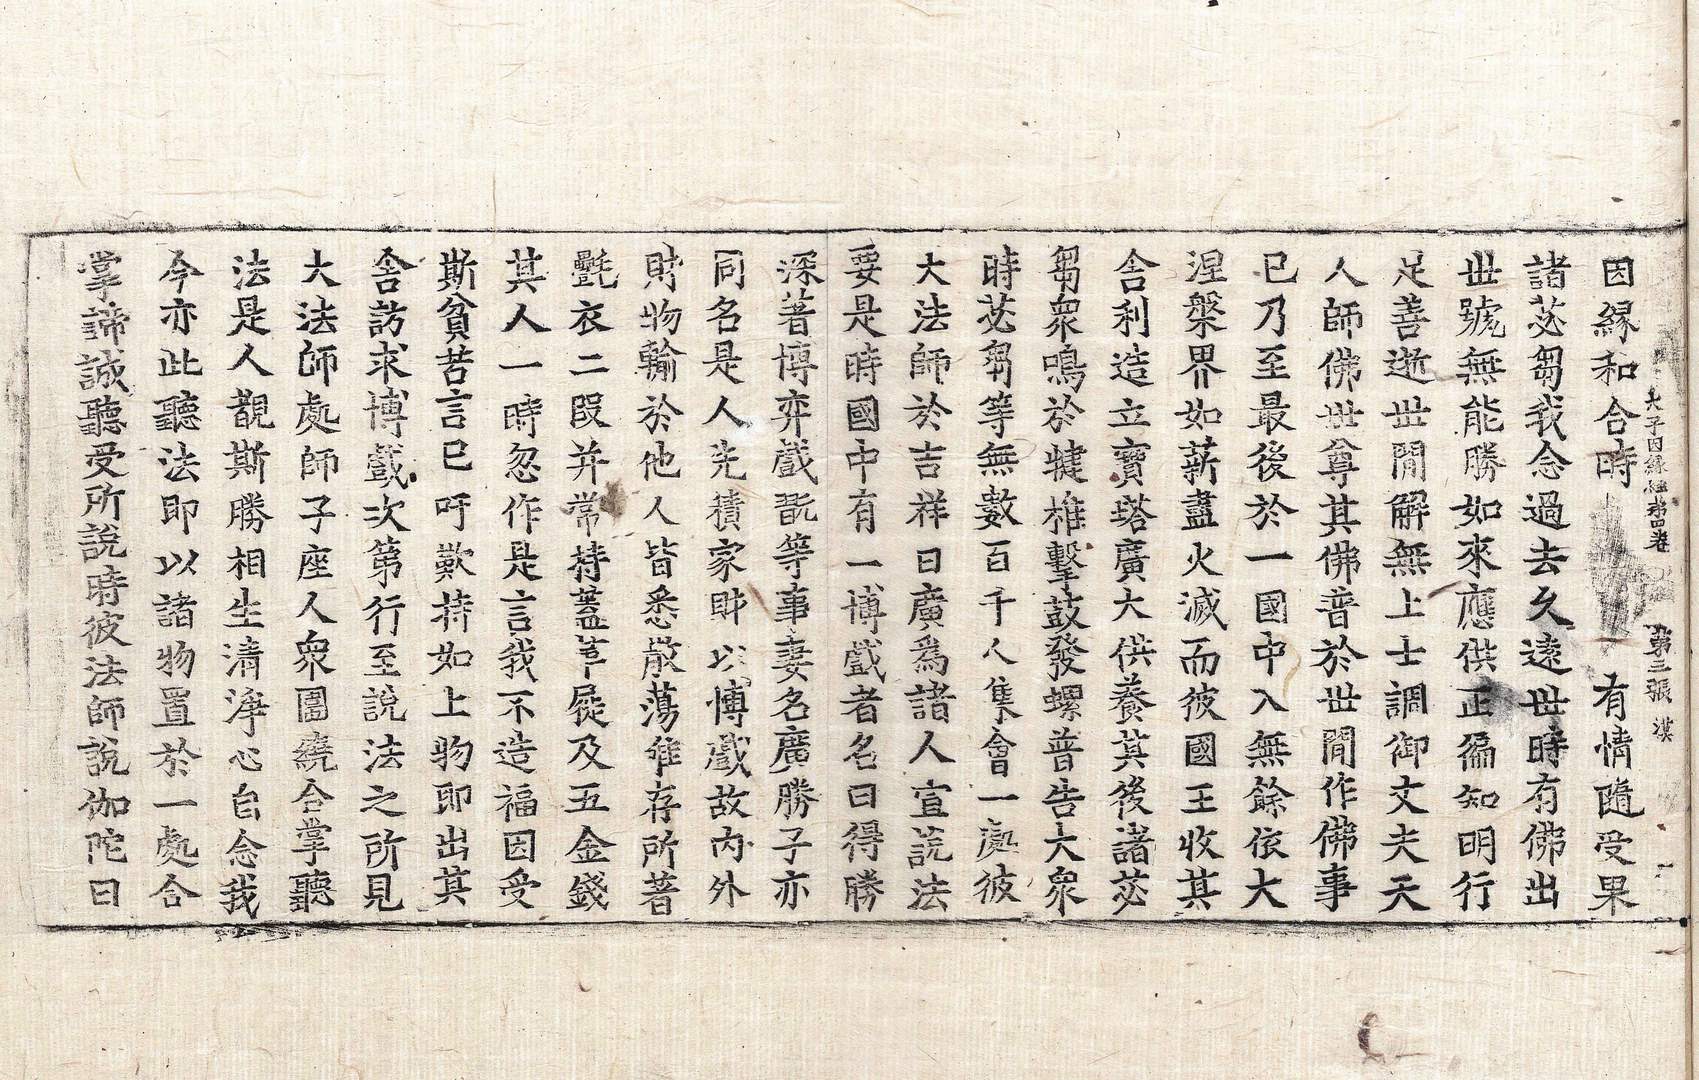 太子因緣經第四卷 第三張 漢
因緣和合時 有情隨受果
諸苾芻我念過去久遠世時有佛出
世號無能勝如來應供正徧知明行
足善逝世閒解無上士調御丈夫天
人師佛世尊其佛普於世閒作佛事
已乃至最後於一國中入無餘依大
涅槃界如薪盡火滅而彼國王收其
舍利造立寶塔廣大供養其後諸苾
芻衆鳴於犍椎擊鼓發螺普告大衆
時苾芻等無數百千人集會一處彼
大法師於吉祥日廣爲諸人宣說法
要是時國中有一博戲者名曰得勝
深著博弈戲翫等事妻名廣勝子亦
同名是人先積家財以博戲故內外
財物輸於他人皆悉散蕩唯存所著
氎衣二段并常持蓋革屣及五金錢
其人一時忽作是言我不造福因受
斯貧苦言已吁歎持如上物即出其
舍訪求博戲次第行至說法之所見
大法師處師子座人衆圍繞合掌聽
法是人觀斯勝相生清淨心自念我
今亦此聽法即以諸物置於一處合
掌諦誠聽受所說時彼法師說伽陀曰